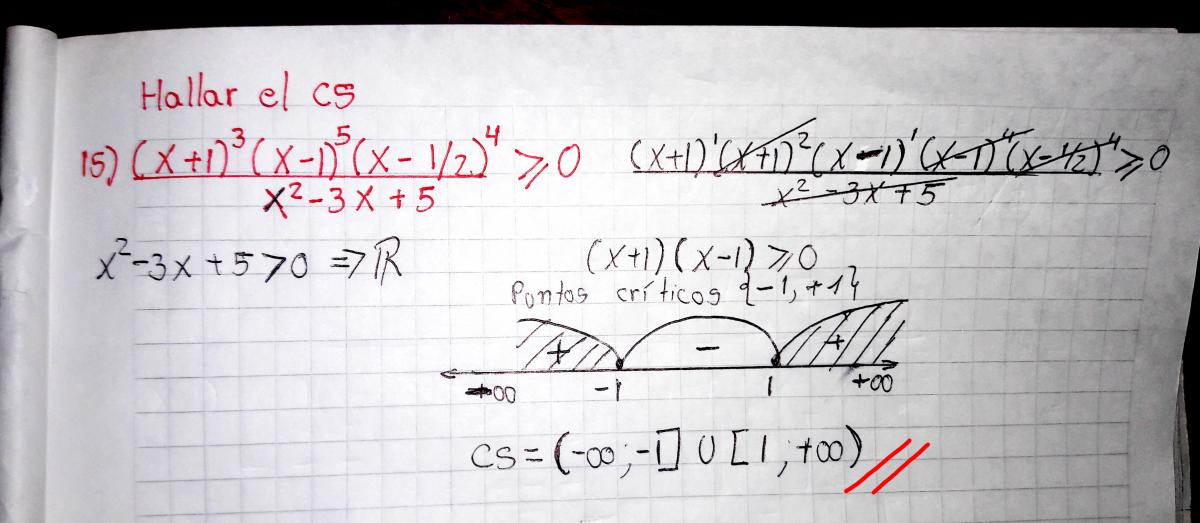 Hallar el CS
15) (x+1)³(x-1)⁵(x-1/2)⁴ ≥ 0
x²-3x+5
(x+1)¹(x+1)²(x-1)¹(x-1)⁴(x-1/2)⁴ ≥ 0
x²-3x+5
x²-3x+5>0 => ℝ
(x+1)(x-1) ≥ 0
Puntos críticos {-1, +1}
+ - +
-∞ -1 1 +∞
CS = (-∞; -1] U [1; +∞)